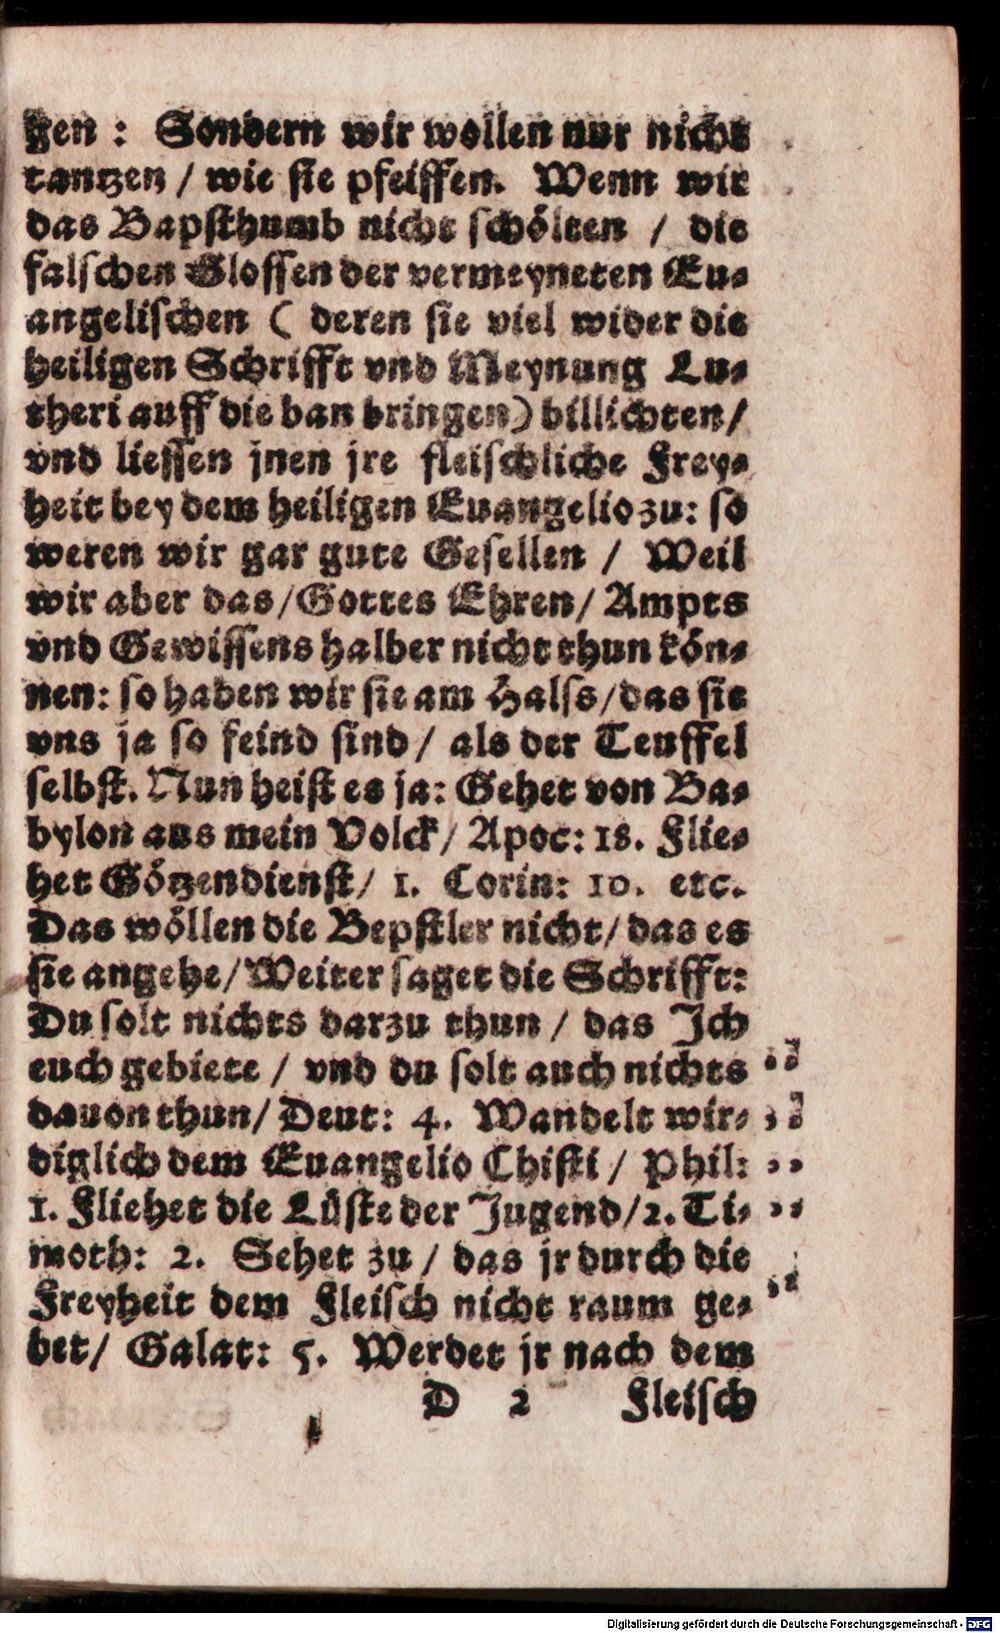 gen : Sondern wir wollen nur nicht
tantzen / wie sie pfeiffen. Wenn wir
das Bapsthumb nicht schölten / die
falschen Glossen der vermeyneten Eu-
angelischen ( deren sie viel wider die
heiligen Schrifft vnd Meynung Lu-
theri auff die ban bringen) billichten/
vnd liessen jnen jre fleischliche Frey-
heit bey dem heiligen Euangelio zu: so
weren wir gar gute Gesellen / Weil
wir aber das/Gottes Ehren/ Ampts
vnd Gewissens halber nicht thun kön-
nen: so haben wir sie am Halss/das sie
vns ja so feind sind / als der Teuffel
selbst. Nun heist es ja: Gehet von Ba-
bylon aus mein Volck/ Apoc: 18. Flie-
het Götzendienst/ 1. Corin: 10. etc.
Das wöllen die Bepstler nicht/das es
sie angehe/Weiter saget die Schrifft:
Du solt nichts darzu thun / das Ich
euch gebiete / vnd du solt auch nichts
dauon thun/ Deut: 4. Wandelt wir-
diglich dem Euangelio Chisti / Phil:
1. Fliehet die Lüste der Jugend/2. Ti-
moth: 2. Sehet zu / das jr durch die
Freyheit dem Fleisch nicht raum ge-
bet/ Galat: 5. Werdet jr nach dem
D 2 Fleisch
Digitalisierung gefördert durch die Deutsche Forschungsgemeinschaft - DFG